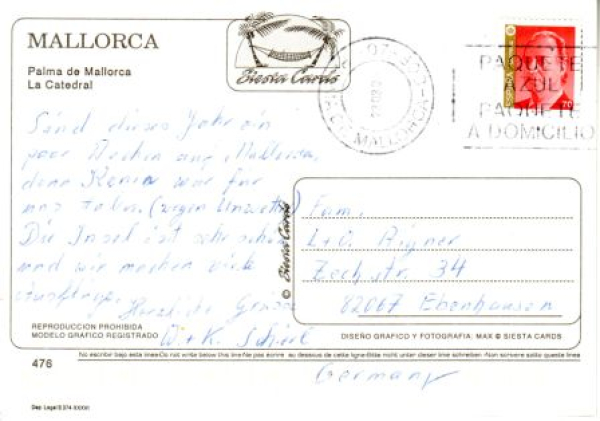 MALLORCA
Palma de Mallorca
La Catedral
Siesta Cards
07-
MALLORCA
PAQUETE
AZUL
PAQUETE
A DOMICILIO
ESPAÑA
70
Sind dieses Jahr ein
paar Wochen auf Mallorca,
denn Kenia war für
uns tabu. (wegen Unwetter)
Die Insel ist sehr schön
und wir machen viele
Ausflüge.
Herzliche Grüsse
W. + K.
© Siesta Cards
Fam.
L + O. Aigner
Zechstr. 34
82067 Ebenhausen
Germany
REPRODUCCION PROHIBIDA
MODELO GRAFICO REGISTRADO
DISEÑO GRAFICO Y FOTOGRAFIA: MAX © SIESTA CARDS
476
No escribir bajo esta linea-Do not write below this line-Ne pas écrire au dessous de cette ligne-Bitte nicht unter dieser linie schreiben-Non scrivere sotto questa linea
Dep. Legal B.